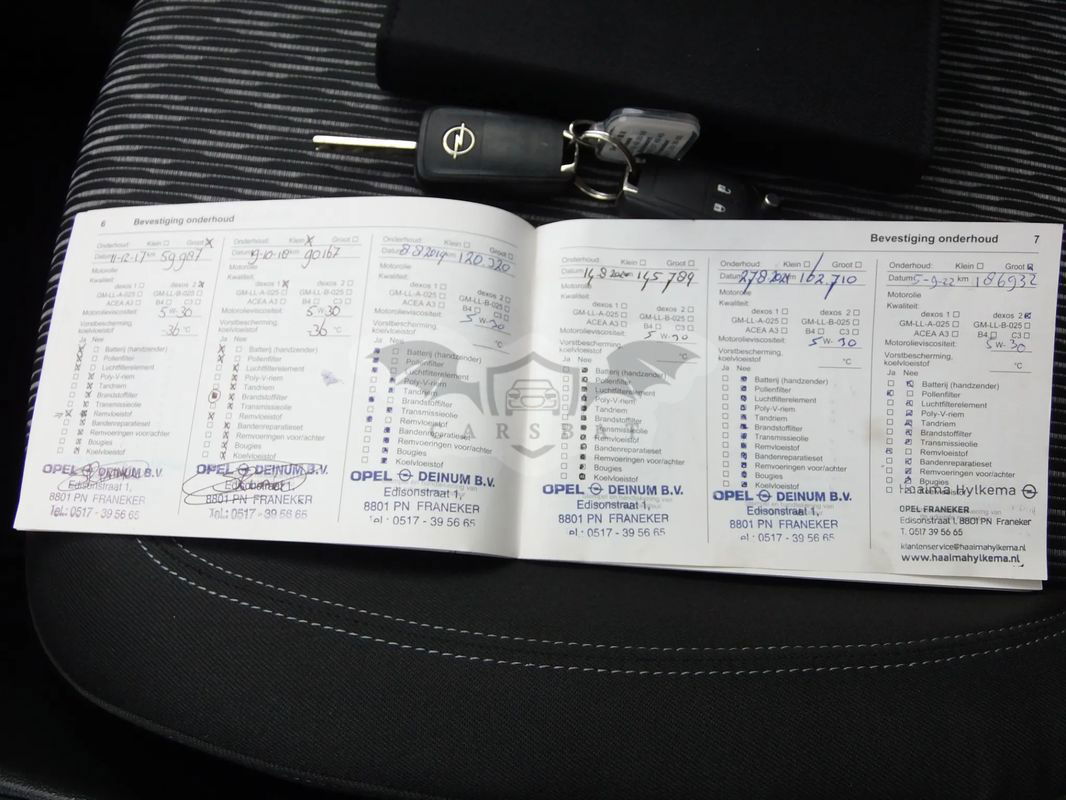 6 Bevestiging onderhoud
Onderhoud: Klein Groot
Datum 11-12-17 km 59987
Motorolie
Kwaliteit:
dexos 1 dexos 2
GM-LL-A-025 GM-LL-B-025
ACEA A3 B4 C3
Motorolieviscositeit: 5 W-30
Vorstbescherming,
koelvloeistof -36 °C
Ja Nee
Batterij (handzender)
Pollenfilter
Luchtfilterelement
Poly-V-riem
Tandriem
Brandstoffilter
Transmissieolie
Remvloeistof
Bandenreparatieset
Remvoeringen voor/achter
Bougies
Koelvloeistof
OPEL DEINUM B.V.
Edisonstraat 1,
8801 PN FRANEKER
Tel.: 0517 - 39 56 65
Onderhoud: Klein Groot
Datum 9-10-18 km 90167
Motorolie
Kwaliteit:
dexos 1 dexos 2
GM-LL-A-025 GM-LL-B-025
ACEA A3 B4 C3
Motorolieviscositeit: 5 W-30
Vorstbescherming,
koelvloeistof -36 °C
Ja Nee
Batterij (handzender)
Pollenfilter
Luchtfilterelement
Poly-V-riem
Tandriem
Brandstoffilter
Transmissieolie
Remvloeistof
Bandenreparatieset
Remvoeringen voor/achter
Bougies
Koelvloeistof
OPEL DEINUM B.V.
8801 PN FRANEKER
Tel.: 0517 - 39 56 65
Onderhoud: Klein Groot
Datum 8 8 2019 km 120 320
Motorolie
Kwaliteit:
dexos 1 dexos 2
GM-LL-A-025 GM-LL-B-025
ACEA A3 B4 C3
Motorolieviscositeit: 5 W-30
Vorstbescherming,
koelvloeistof °C
Ja Nee
Batterij (handzender)
Pollenfilter
Luchtfilterelement
Poly-V-riem
Tandriem
Brandstoffilter
Transmissieolie
Remvloeistof
Bandenreparatieset
Remvoeringen voor/achter
Bougies
Koelvloeistof
OPEL DEINUM B.V.
Edisonstraat 1,
8801 PN FRANEKER
Tel.: 0517 - 39 56 65
Bevestiging onderhoud 7
Onderhoud: Klein Groot
km 145 789
Motorolie
Kwaliteit:
dexos 1 dexos 2
GM-LL-A-025 GM-LL-B-025
ACEA A3 B4 C3
Motorolieviscositeit: 5 W-30
Vorstbescherming,
koelvloeistof °C
Ja Nee
Batterij (handzender)
Pollenfilter
Luchtfilterelement
Poly-V-riem
Tandriem
Brandstoffilter
Transmissieolie
Remvloeistof
Bandenreparatieset
Remvoeringen voor/achter
Bougies
Koelvloeistof
OPEL DEINUM B.V.
Edisonstraat 1,
8801 PN FRANEKER
el.: 0517 - 39 56 65
Onderhoud: Klein Groot
Datum 27 8 2021 km 162 710
Motorolie
Kwaliteit:
dexos 1 dexos 2
GM-LL-A-025 GM-LL-B-025
ACEA A3 B4 C3
Motorolieviscositeit: 5 W-30
Vorstbescherming,
koelvloeistof °C
Ja Nee
Batterij (handzender)
Pollenfilter
Luchtfilterelement
Poly-V-riem
Tandriem
Brandstoffilter
Transmissieolie
Remvloeistof
Bandenreparatieset
Remvoeringen voor/achter
Bougies
Koelvloeistof
OPEL DEINUM B.V.
Edisonstraat 1,
8801 PN FRANEKER
el.: 0517 - 39 56 65
Onderhoud: Klein Groot
Datum 5-9-22 km 186932
Motorolie
Kwaliteit:
dexos 1 dexos 2
GM-LL-A-025 GM-LL-B-025
ACEA A3 B4 C3
Motorolieviscositeit: 5 W-30
Vorstbescherming,
koelvloeistof °C
Ja Nee
Batterij (handzender)
Pollenfilter
Luchtfilterelement
Poly-V-riem
Tandriem
Brandstoffilter
Transmissieolie
Remvloeistof
Bandenreparatieset
Remvoeringen voor/achter
Bougies
Koelvloeistof
Haaima Hylkema
OPEL FRANEKER
Edisonstraat 1, 8801 PN Franeker
T. 0517 39 56 65
klantenservice@haaimahylkema.nl
www.haaimahylkema.nl
CARSBAT